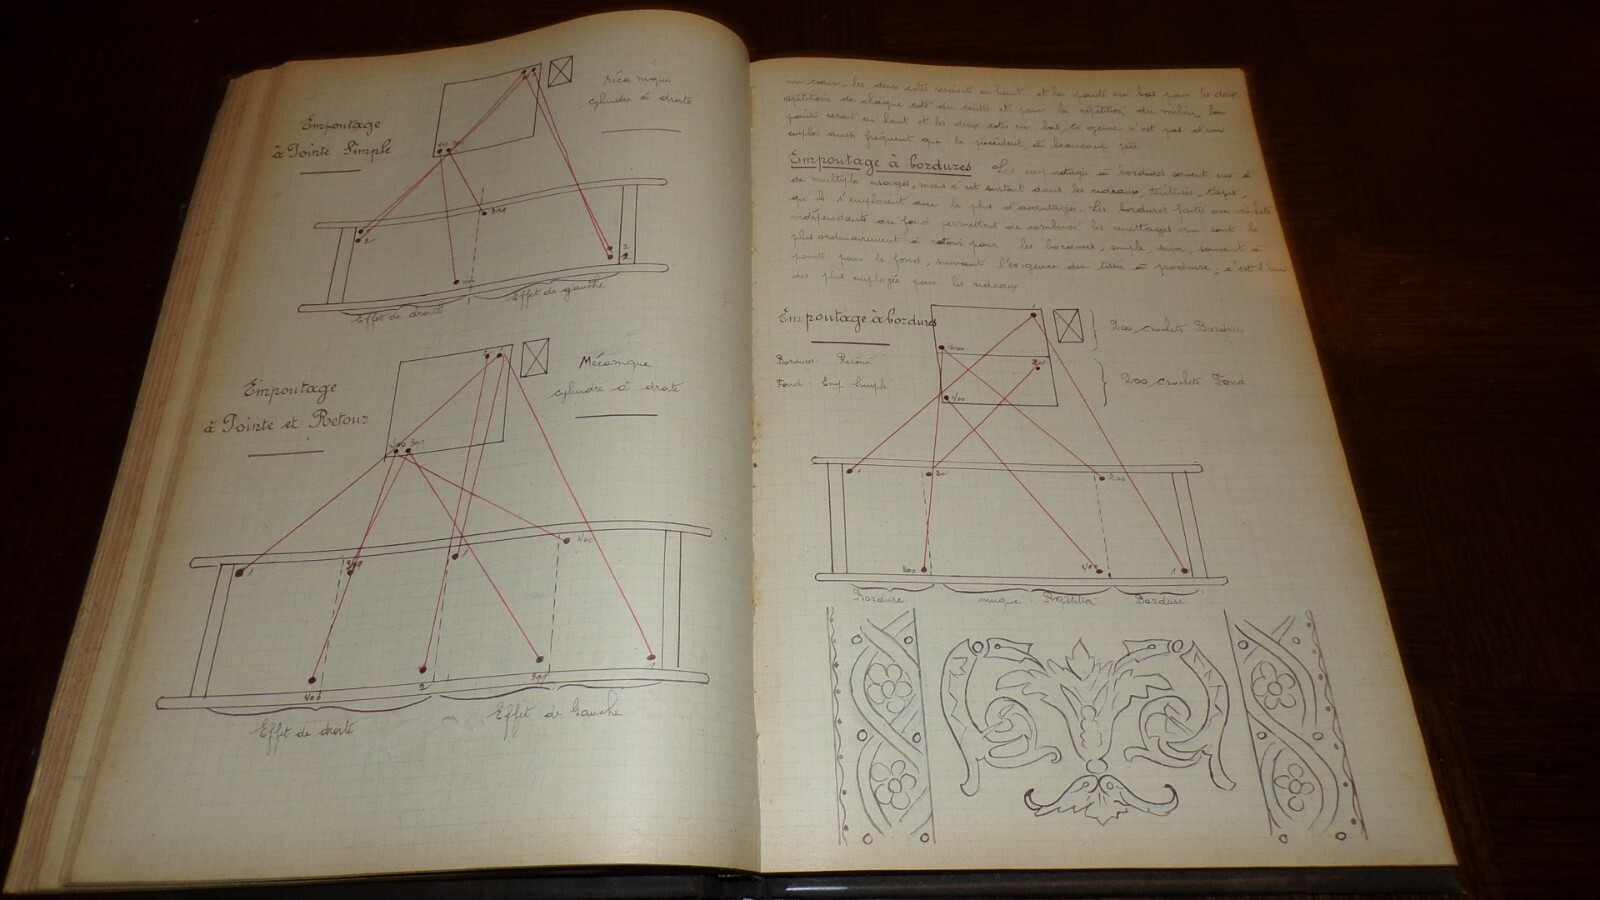 Empoutage
à Pointe Simple
Mécanique
cylindre à droite
400 399
1
399
2
1
400
Effet de droite
Effet de gauche
Empoutage
à Pointe et Retour
Mécanique
cylindre à droite
400 399
1
399
1
400
400
2
399
1
Effet de droite
Effet de Gauche
un cœur, les deux côtés seraient en haut et la pointe en bas pour les deux
répétitions de chaque côté du centre et pour la répétition du milieu, la
pointe serait en haut et les deux côtés en bas, ce genre n'est pas d'un
emploi aussi fréquent que le précédent, à beaucoup près
Empoutage à bordures Les empoutages à bordures servent, eux à
de multiples usages, mais c'est surtout dans les rideaux, tentures, tapis,
qu'ils s'emploient avec le plus d'avantages. Les bordures faites au crochets
indépendants du fond permettent de combiner les empoutages qui sont le
plus ordinairement à retour pour les bordures, simple, suivi, ou à
pointe pour le fond, suivant l'exigence du tissu à produire, c'est l'un
des plus employés pour les rideaux
Empoutage à bordures
Bordures: Retour
Fond: Emp Simple
1
200
201
400
200 crochets Bordure
200 crochets Fond
1
201
200
200
400
1
Bordure
unique Répétition
Bordure